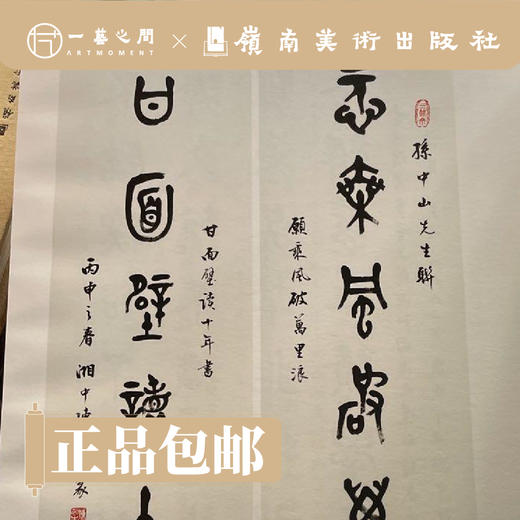 一藝之間
ARTMOMENT
×
嶺南美術出版社
孫中山先生聯
願乘風破萬
願乘風破萬里浪
甘面壁讀十
甘面壁讀十年書
丙申之春 湘中
正品包邮